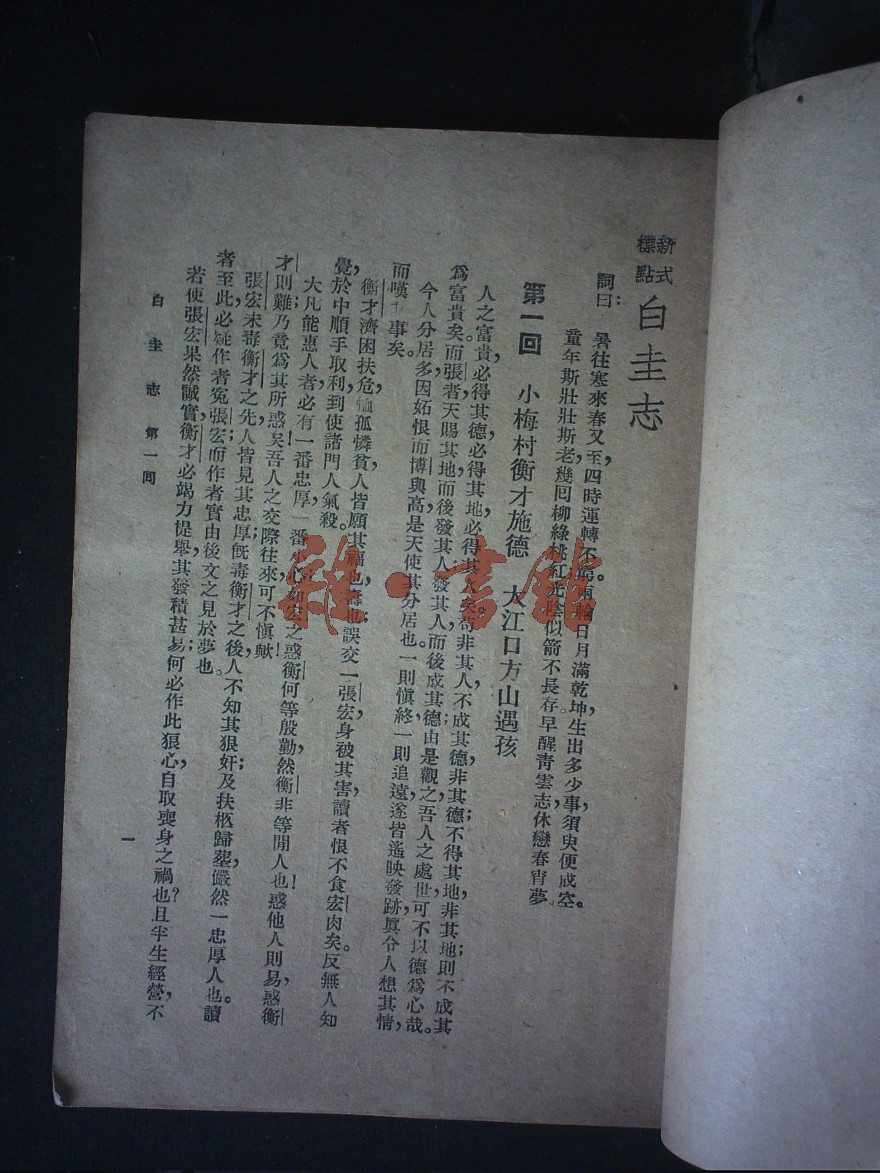 新式標點 白圭志
第一回 小梅村衡才施德 大江口方山遇孩
詞曰：暑往寒來春又至，四時運轉不虧。兩輪日月滿乾坤，生出多少事，須臾便成空。
童年斯壯壯斯老，幾囘柳綠桃紅，光陰似箭不長存，早醒青雲志，休戀春宵夢。
人之富貴，必得其德，必得其地，必得其人矣。苟非其人，不成其德，非其德，不得其地，非其地；則不成其
爲富貴矣。而張者天賜其地，而後發其人，發其人，而後成其德；由是觀之，吾人之處世，可不以德爲心哉。
今人分居，多因妬恨，而博興高是天使其分居也。一則愼終，一則追遠，遂皆遙映發跡，眞令人想其情，
而嘆 事矣。
衡才濟困扶危，恤孤憐貧，人皆願其福也，壽也；誤交一張宏，身被其害，讀者恨不食宏肉矣。反無人知
覺，於中順手取利，到使諸門人氣殺。
大凡能惠人者，必有一番忠厚，一番小心，如宏之惑衡，何等殷勤，然衡非等閒人也！惑他人則易，惑衡
才則難；乃竟爲其所惑矣！吾人之交際往來，可不愼歟！
張宏未毒衡才之先，人皆見其忠厚；旣毒衡才之後，人不知其狠奸；及扶柩歸葬，儼然一忠厚人也。讀
者至此，必疑作者寃張宏；而作者實由後文之見於夢也。
若使張宏果然誠實，衡才必竭力提舉，其發積甚易；何必作此狠心，自取喪身之禍也？且半生經營，不
白圭志 第一回
一
雜·書館